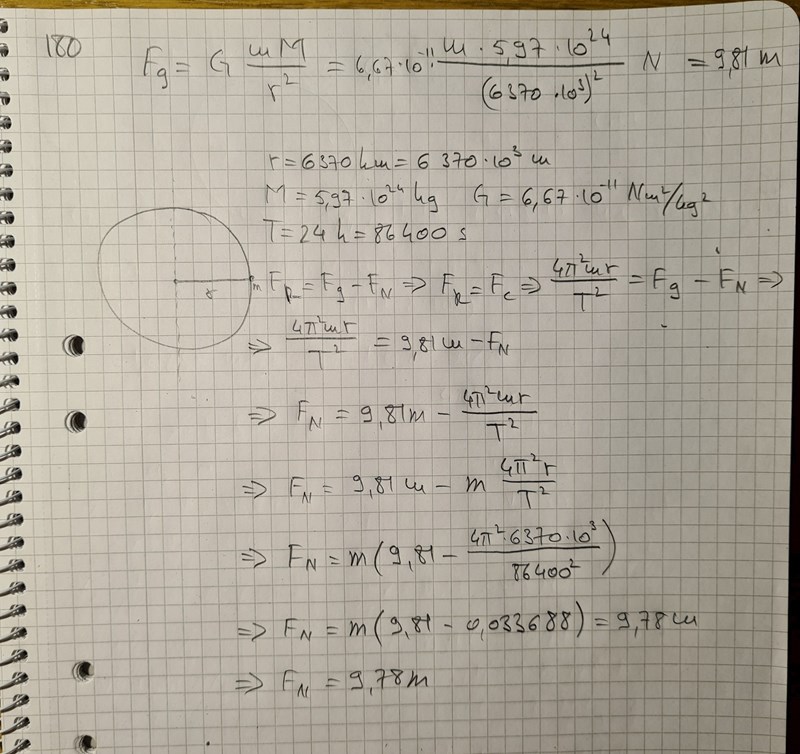 180
F_g = G \frac{mM}{r^2} = 6,67·10^{-11} \frac{m · 5,97 · 10^{24}}{(6370 · 10^3)^2} N = 9,81 m
r = 6370 km = 6 370·10^3 m
M = 5,97·10^{24} kg G = 6,67·10^{-11} Nm^2/kg^2
T = 24 h = 86400 s
r m F_R = F_g - F_N ⇒ F_R = F_c ⇒ \frac{4π^2mr}{T^2} = F_g - F_N ⇒
⇒ \frac{4π^2mr}{T^2} = 9,81 m - F_N
⇒ F_N = 9,81m - \frac{4π^2mr}{T^2}
⇒ F_N = 9,81 m - m \frac{4π^2r}{T^2}
⇒ F_N = m(9,81 - \frac{4π^2·6370·10^3}{86400^2})
⇒ F_N = m(9,81 - 0,033688) = 9,78 m
⇒ F_N = 9,78m